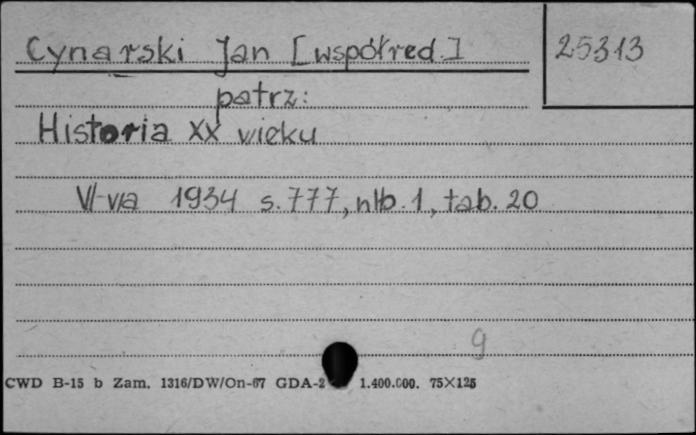 Cynarski Jan [współred.]
25313
patrz:
Historia XX wieku
W-wa 1934 s. 777, nlb. 1, tab. 20
g
CWD B-15 b Zam. 1316/DW/On-67 GDA-2 1.400.000. 75×125